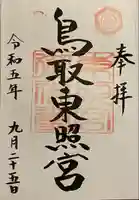 奉拝
鳥取東照宮
令和五年 九月二十五日